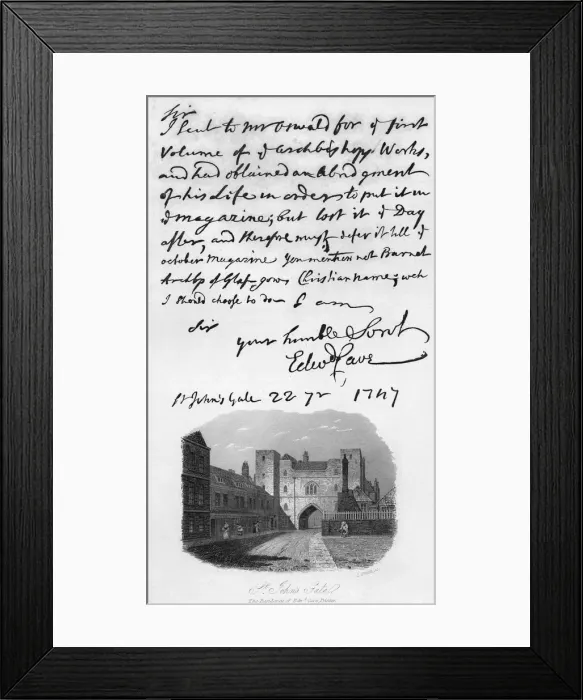 Sir
I sent to Mr Oswald for ye first
Volume of ye Archbishopp Works,
and had obtained an Abridgment
of his Life in order to put it in
ye magazine; but lost it ye Day
after, and therefore must defer it till ye
october Magazine You mention not Burnet
Archbp of Glasgows Christian name; wch
I should choose to do I am
Sir
your humble Servt
Edwd Cave
St John's Gate 22 7r 1747
St. John's Gate
The Residence of Edwd. Cave, Printer